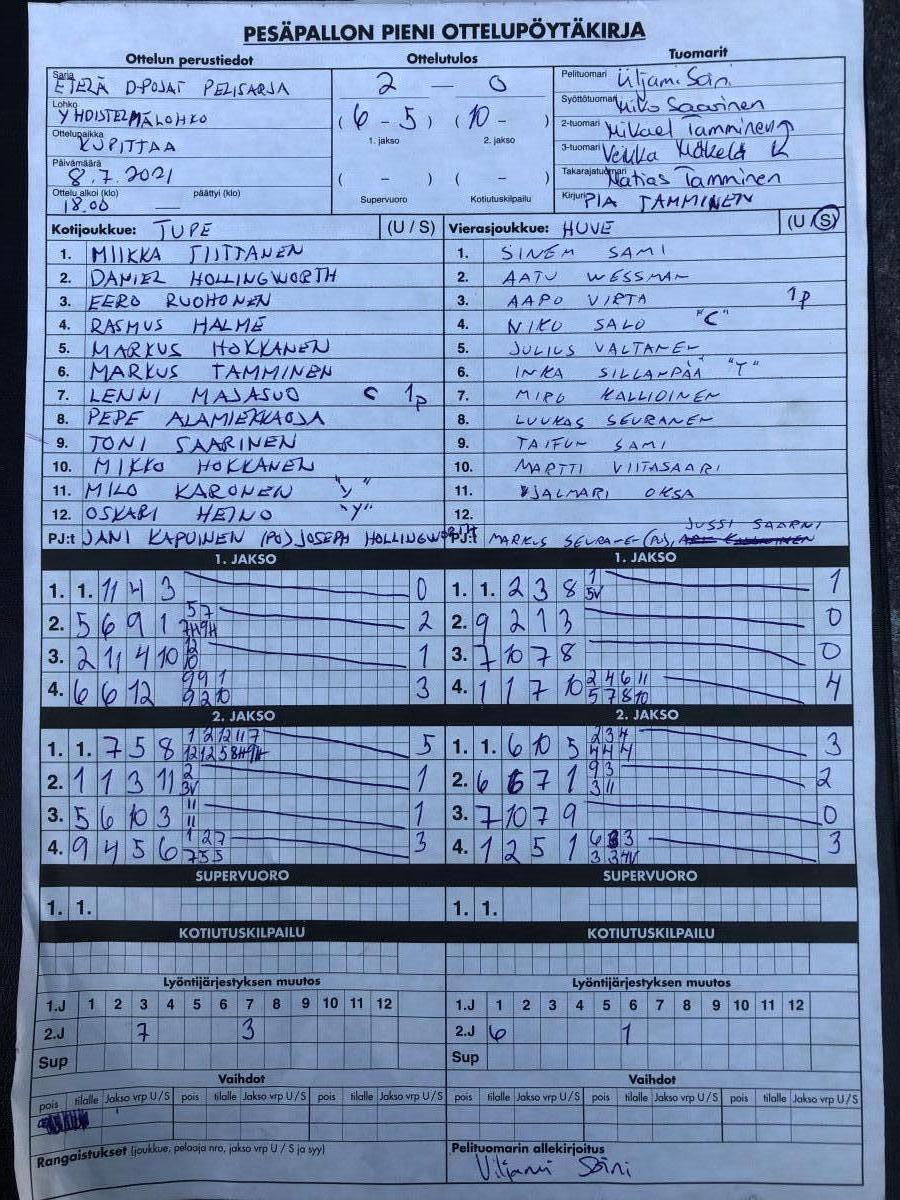 PESÄPALLON PIENI OTTELUPÖYTÄKIRJA
Ottelun perustiedot Ottelutulos Tuomarit
Sarja ETELÄ D-POJAT PELISARJA
Lohko YHDISTELMÄLOHKO
Ottelupaikka KUPITTAA
Päivämäärä 8.7.2021
Ottelu alkoi (klo) päättyi (klo)
18.00 —
2 — 0
(6 - 5) (10 - )
1. jakso 2. jakso
( - ) ( - )
Supervuoro Kotiutuskilpailu
Pelituomari Viljami Söini
Syöttötuomari Niko Saarinen
2-tuomari Mikael Tamminen
3-tuomari Veikka Mäkelä K
Takarajatuomari Matias Tamminen
Kirjuri PIA TAMMINEN
Kotijoukkue: TUPE (U / S) Vierasjoukkue: HUVE (U / S)
1. MIIKKA TIITTANEN 1. SINEM SAMI
2. DANIEL HOLLINGWORTH 2. AATU WESSMAN
3. EERO RUOHONEN 3. AAPO VIRTA 1p
4. RASMUS HALME 4. NIKO SALO "C"
5. MARKUS HOKKANEN 5. JULIUS VALTANEN
6. MARKUS TAMMINEN 6. INKA SILLANPÄÄ "Y"
7. LENNI MAJASUO C 1p 7. MIRO KALLIOINEN
8. PEPE ALAMIEKKAOJA 8. LUUKAS SEURANEN
9. TONI SAARINEN 9. TAIFUN SAMI
10. MIKKO HOKKANEN 10. MARTTI VIITASAARI
11. MILO KARONEN "Y" 11. HJALMARI OKSA
12. OSKARI HEINO "Y" 12.
PJ:t JANI KAPUINEN (PJ) JOSEPH HOLLINGWORTH PJ:t MARKUS SEURANE- (PJ), JUSSI SAARNI
1. JAKSO 1. JAKSO
1. 1. 11 4 3 0 1. 1. 2 3 8 1 5V 1
2. 5 6 9 1 5 7 7H 9H 2 2. 9 2 1 3 0
3. 2 11 4 10 12 10 1 3. 7 10 7 8 0
4. 6 6 12 9 9 1 9 2 10 3 4. 1 1 7 10 2 4 6 11 5 7 8 10 4
2. JAKSO 2. JAKSO
1. 1. 7 5 8 1 2 12 11 7 12 12 5 8H 9H 5 1. 1. 6 10 5 2 3 4 4 4 4 3
2. 1 1 3 11 2 3V 1 2. 6 6 7 1 9 3 3 11 2
3. 5 6 10 3 11 11 1 3. 7 10 7 9 0
4. 9 4 5 6 1 2 7 7 5 5 3 4. 1 2 5 1 6 3 3 3 3 4V 3
SUPERVUORO SUPERVUORO
1. 1. 1. 1.
KOTIUTUSKILPAILU KOTIUTUSKILPAILU
Lyöntijärjestyksen muutos Lyöntijärjestyksen muutos
1.J 1 2 3 4 5 6 7 8 9 10 11 12 1.J 1 2 3 4 5 6 7 8 9 10 11 12
2.J 7 3 2.J 6 1
Sup Sup
Vaihdot Vaihdot
pois tilalle Jakso vrp U / S pois tilalle Jakso vrp U / S pois tilalle Jakso vrp U / S pois tilalle Jakso vrp U / S pois tilalle Jakso vrp U / S pois tilalle Jakso vrp U / S
Rangaistukset (joukkue, pelaaja nro, jakso vrp U / S ja syy) Pelituomarin allekirjoitus
Viljami Söini